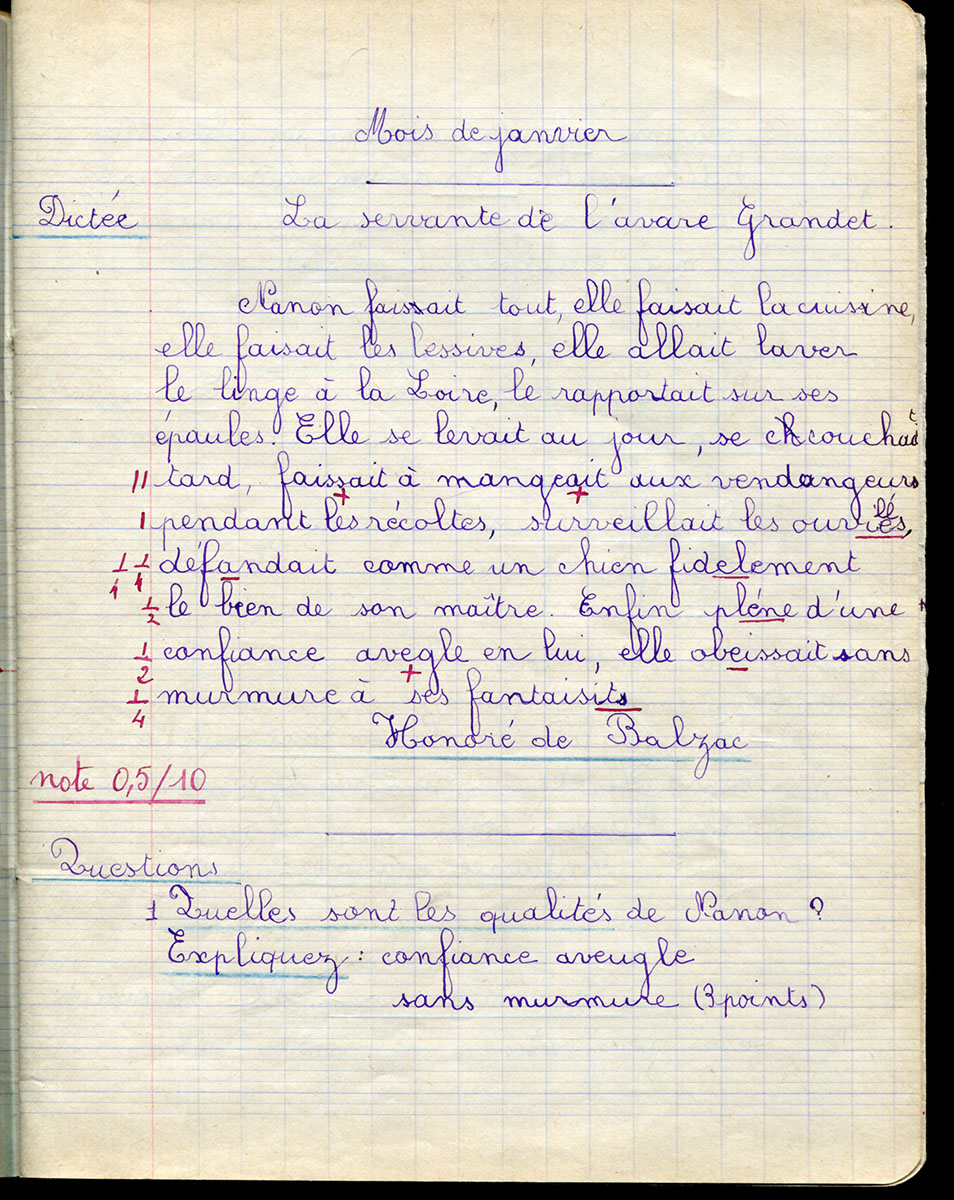 Mois de janvier
Dictée La servante de l'avare Grandet.
Nanon faissait tout, elle faisait la cuisine,
elle faisait les lessives, elle allait laver
le linge à la Loire, le rapportait sur ses
épaules. Elle se levait au jour, se couchait
11 tard, faissait à mangeait aux vendangeurs
1 pendant les récoltes, surveillait les
1/4 1/4 défandait comme un chien fidelement
1/2 le bien de son maître. Enfin pléne d'une
1/2 confiance avegle en lui, elle obeissait sans
1/4 murmure à ses fantaisits
Honoré de Balzac
note 0,5/10
Questions
1 Quelles sont les qualités de Nanon ?
Expliquez : confiance aveugle
sans murmure (3 points)